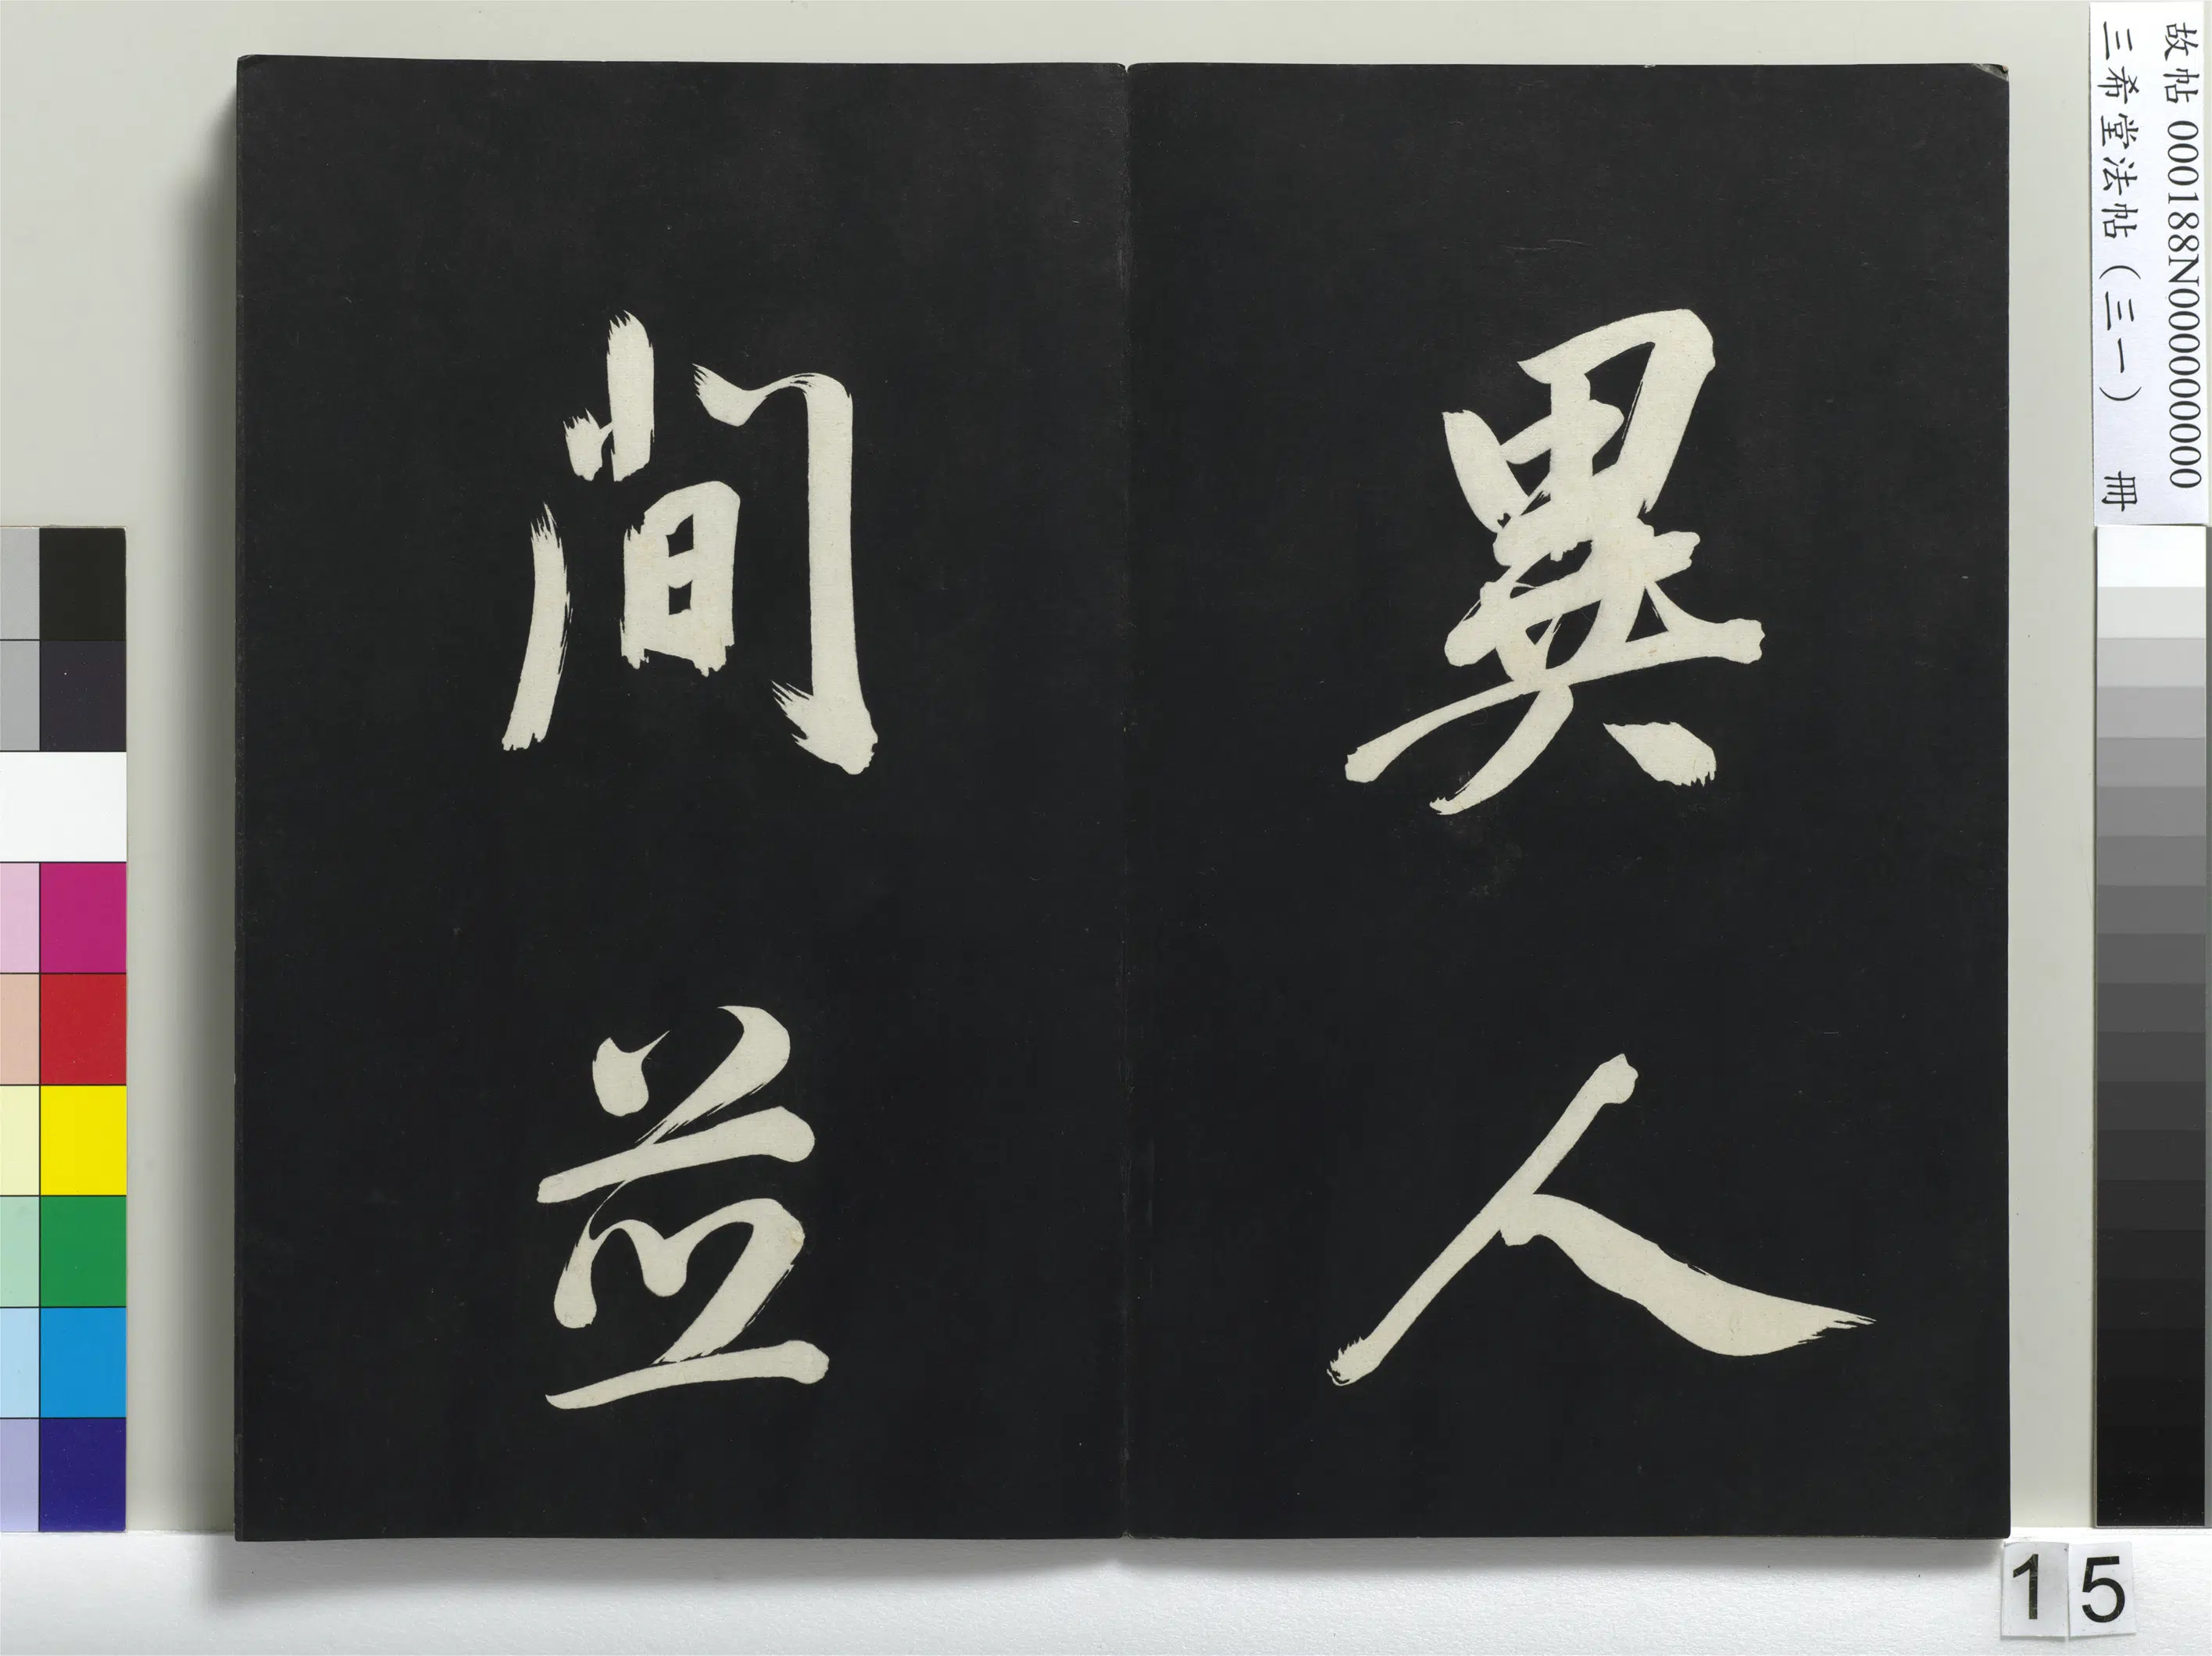 異人
間並
故帖 000188N000000000
三希堂法帖（三一） 冊
15